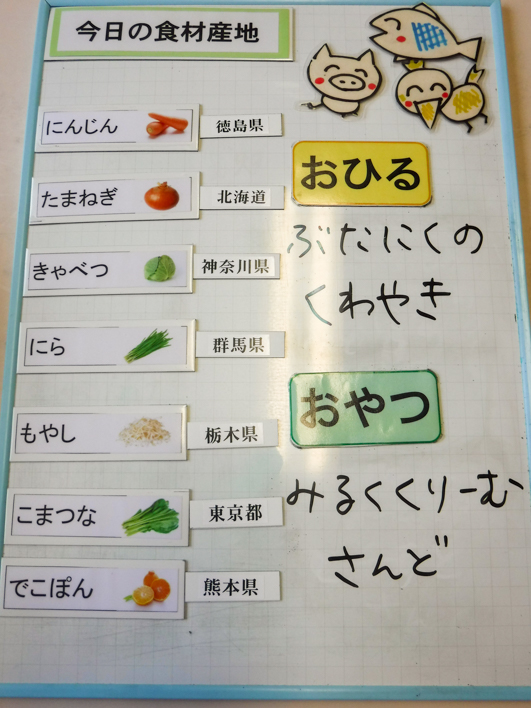 今日の食材産地
にんじん 徳島県
たまねぎ 北海道
きゃべつ 神奈川県
にら 群馬県
もやし 栃木県
こまつな 東京都
でこぽん 熊本県
おひる
ぶたにくの
くわやき
おやつ
みるくくりーむ
さんど